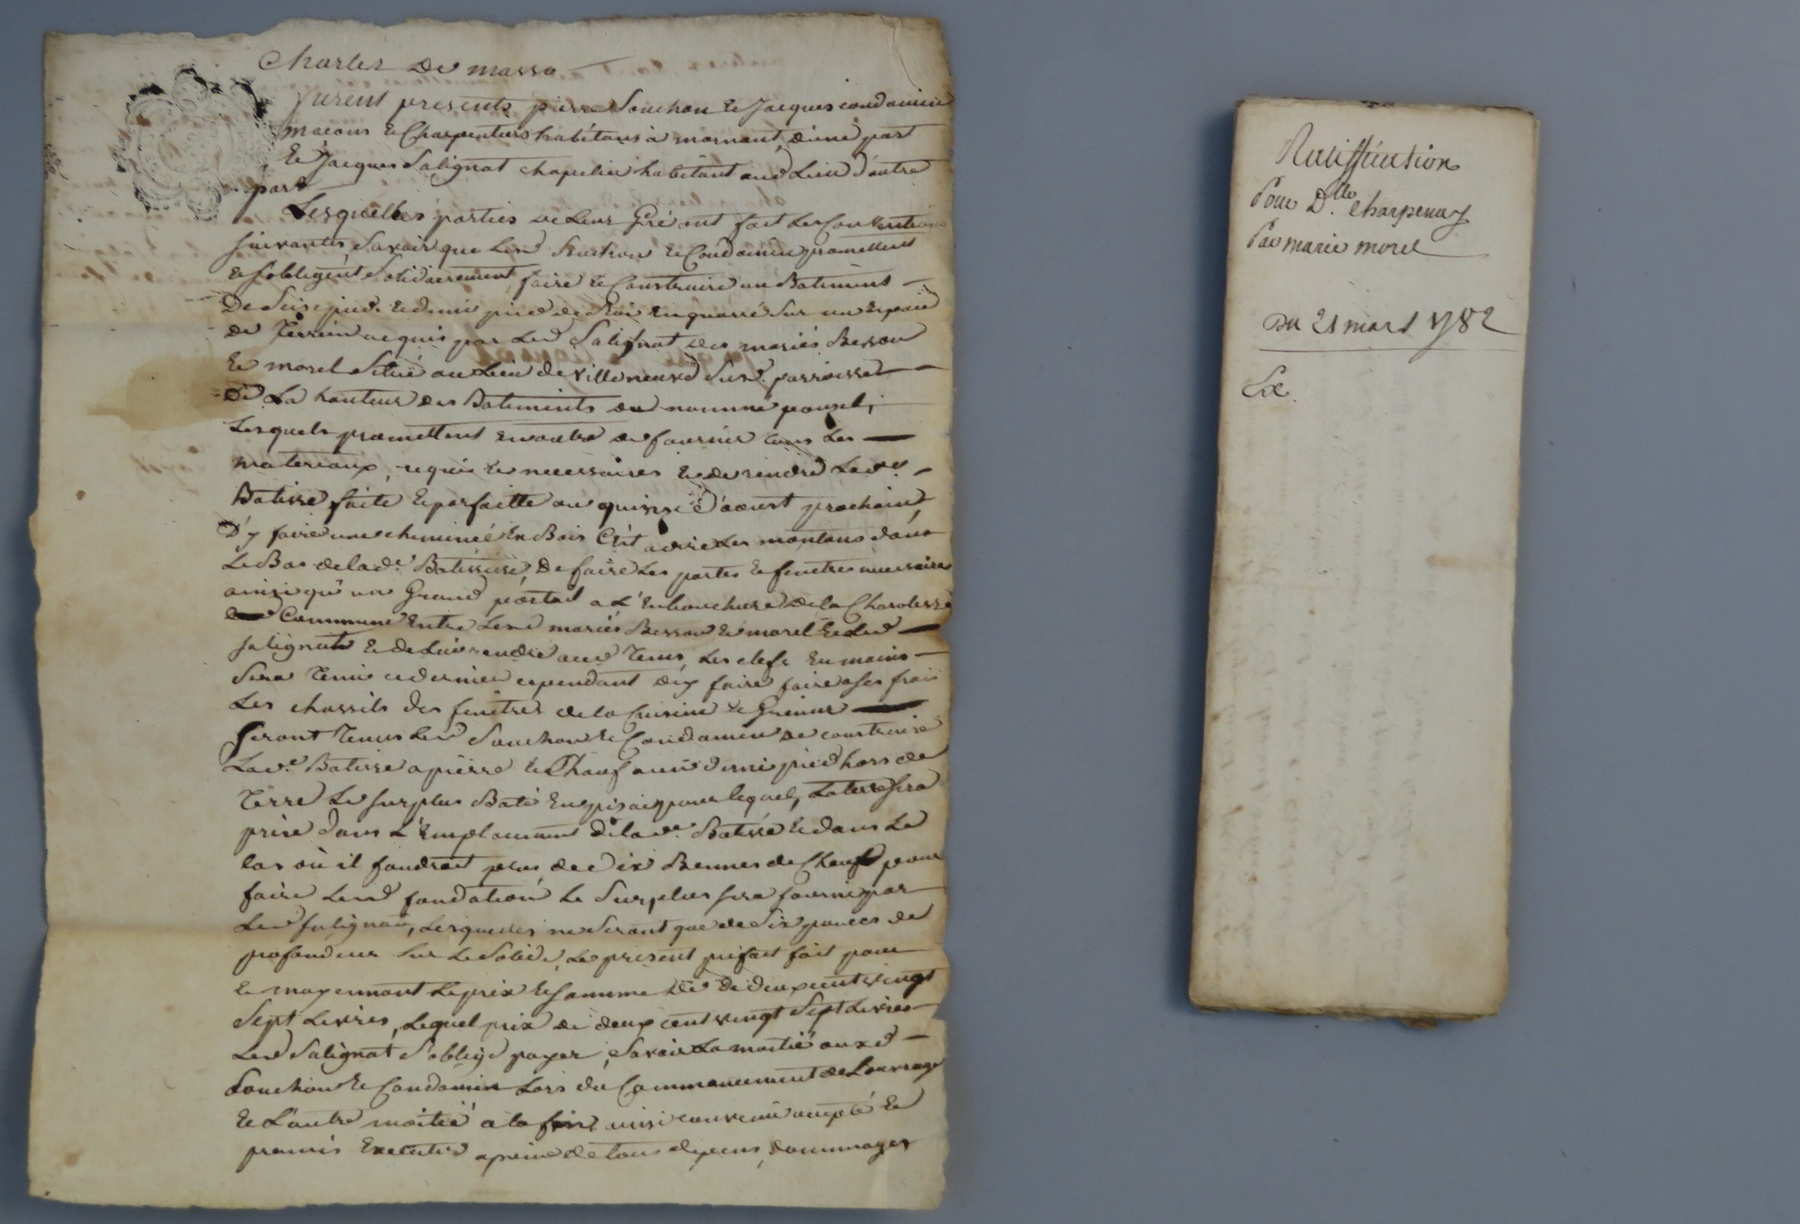 Charles De masso
furent presents pierre Souchon & Jacques condamin
macons & Charpentiers habitans à mornant, d'une part
& Jacques Salignat chapelier habitant aud Lieu d'autre
part
Lesquelles parties de Leur Gré ont fait Les Conventions
suivantes, Savoir que Lesd Souchon & Condamin promettent
& s'obligent Solidairement, faire & Construire un Batiment
De Seize pied & demi pied de Roi en quarré Sur un Espace
de Terrein acquis par Led Salignat des mariés Besson
& morel Situé au Lieu de villeneuve Susd. parroisse
De La hauteur des Batiments du nommé
Lesquels promettent en outre de fournir tous Les
materiaux requis & necessaires & de rendre Lade
Batisse faite & parfaitte au quinze d'aoust prochain,
D'y faire une cheminée En Bois C'est a dire Les montans dans
Le Bas de lade Batisse, De faire Les portes & fenetres necessaires
ainsi qu'un Grand portail a L'Embouchure de la
Commune Entre Lesd mariés Besson & morel & Led
Salignat & de Lui rendre aud Tems, Les clefs En mains
Sera Tenu ce dernier cependant d'y faire faire a ses frais
Les chassits des fenêtres de la Cuisine & Grenier
Seront Tenus Lesd Souchon & Condamin de construire
Lade Batisse a pierre & Chauf a un demi pied hors de
Terre Le surplus Bati En pisay pour lequel, La terre sera
prise dans L'Emplacement de lade Batisse & dans Le
cas où il faudroit plus de dix Bennes de Chauf pour
faire Lesd fondation Le Surplus sera fourni par
Led Salignat, Lesquelles ne Seront que de Six pouces de
profondeur Sur Le Solide, Le present prifait fait pour
& moyennant Le prix & Somme de deux cent vingt
Sept Livres, Lequel prix de deux cent vingt Sept Livres
Led Salignat S'oblige payer, Savoir La moitié auxd
Souchon & Condamin Lors du Commancement de Louvrage
& L'autre moitié a la fin, ainsi convenu accepté &
promis Executer a peine de tous depens, dommages
Ratiffication
Pour Dlle Charpenay
Par marie morel
Du 21 mars 1782